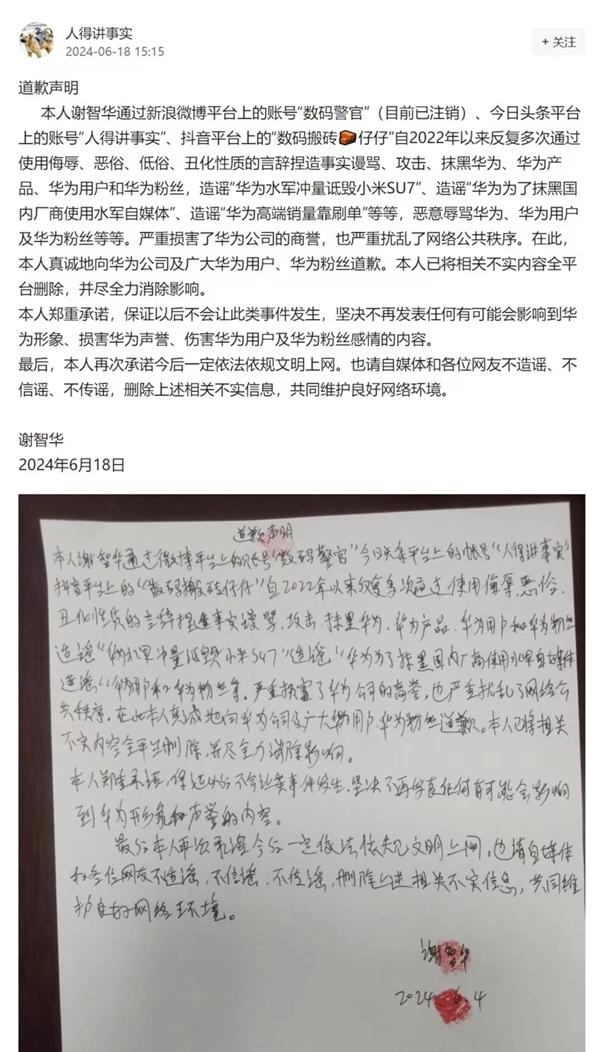 人得讲事实
2024-06-18 15:15
+ 关注
道歉声明
本人谢智华通过新浪微博平台上的账号“数码警官”（目前已注销）、今日头条平台
上的账号“人得讲事实”、抖音平台上的“数码搬砖🧱仔仔”自2022年以来反复多次通过
使用侮辱、恶俗、低俗、丑化性质的言辞捏造事实谩骂、攻击、抹黑华为、华为产
品、华为用户和华为粉丝，造谣“华为水军冲量诋毁小米SU7”、造谣“华为为了抹黑国
内厂商使用水军自媒体”、造谣“华为高端销量靠刷单”等等，恶意辱骂华为、华为用户
及华为粉丝等等。严重损害了华为公司的商誉，也严重扰乱了网络公共秩序。在此，
本人真诚地向华为公司及广大华为用户、华为粉丝道歉。本人已将相关不实内容全平
台删除，并尽全力消除影响。
本人郑重承诺，保证以后不会让此类事件发生，坚决不再发表任何有可能会影响到华
为形象、损害华为声誉、伤害华为用户及华为粉丝感情的内容。
最后，本人再次承诺今后一定依法依规文明上网。也请自媒体和各位网友不造谣、不
信谣、不传谣，删除上述相关不实信息，共同维护良好网络环境。
谢智华
2024年6月18日
道歉声明
本人谢智华通过微博平台上的账号“数码警官”今日头条平台上的帐号“人得讲事实”
抖音平台上的“数码搬砖仔仔”自2022年以来反复多次通过使用侮辱恶俗、
丑化性质的言辞捏造事实谩骂、攻击、抹黑华为、华为产品、华为用户和华为粉丝
造谣“华为水军冲量诋毁小米SU7”造谣“华为为了抹黑国内厂商使用水军自媒体
造谣“华为用户和华为粉丝等。严重损害了华为公司的商誉，也严重扰乱了网络公
共秩序。在此本人真诚地向华为公司及广大华为用户华为粉丝道歉。本人已将相关
不实内容全平台删除，并尽全力消除影响。
本人郑重承诺，保证以后不会让类事件发生、坚决不再发表任何有可能会影响
到华为形象和声誉的内容。
最后本人再次承诺今后一定依法依规文明上网，也请自媒体
和各位网友不造谣，不信谣、不传谣，删除上述相关不实信息，共同维
护良好网络环境。
谢智华
2024 6 4